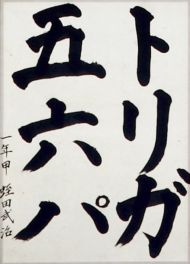 トリガ
五六パ
一年甲 蛭田武治